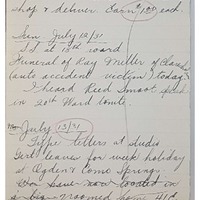 shop & deliver. Earn $1.00 each
Sun. July 12/31
S.S. at 13th ward
Funeral of Ray Miller of
(auto accident victim) today.
I heard Reed Smoot speak
in 20th Ward tonite.
Mon July 13/31
Type letters at studio
Gert leaves for week holiday
at Ogden's Como Springs
now located in